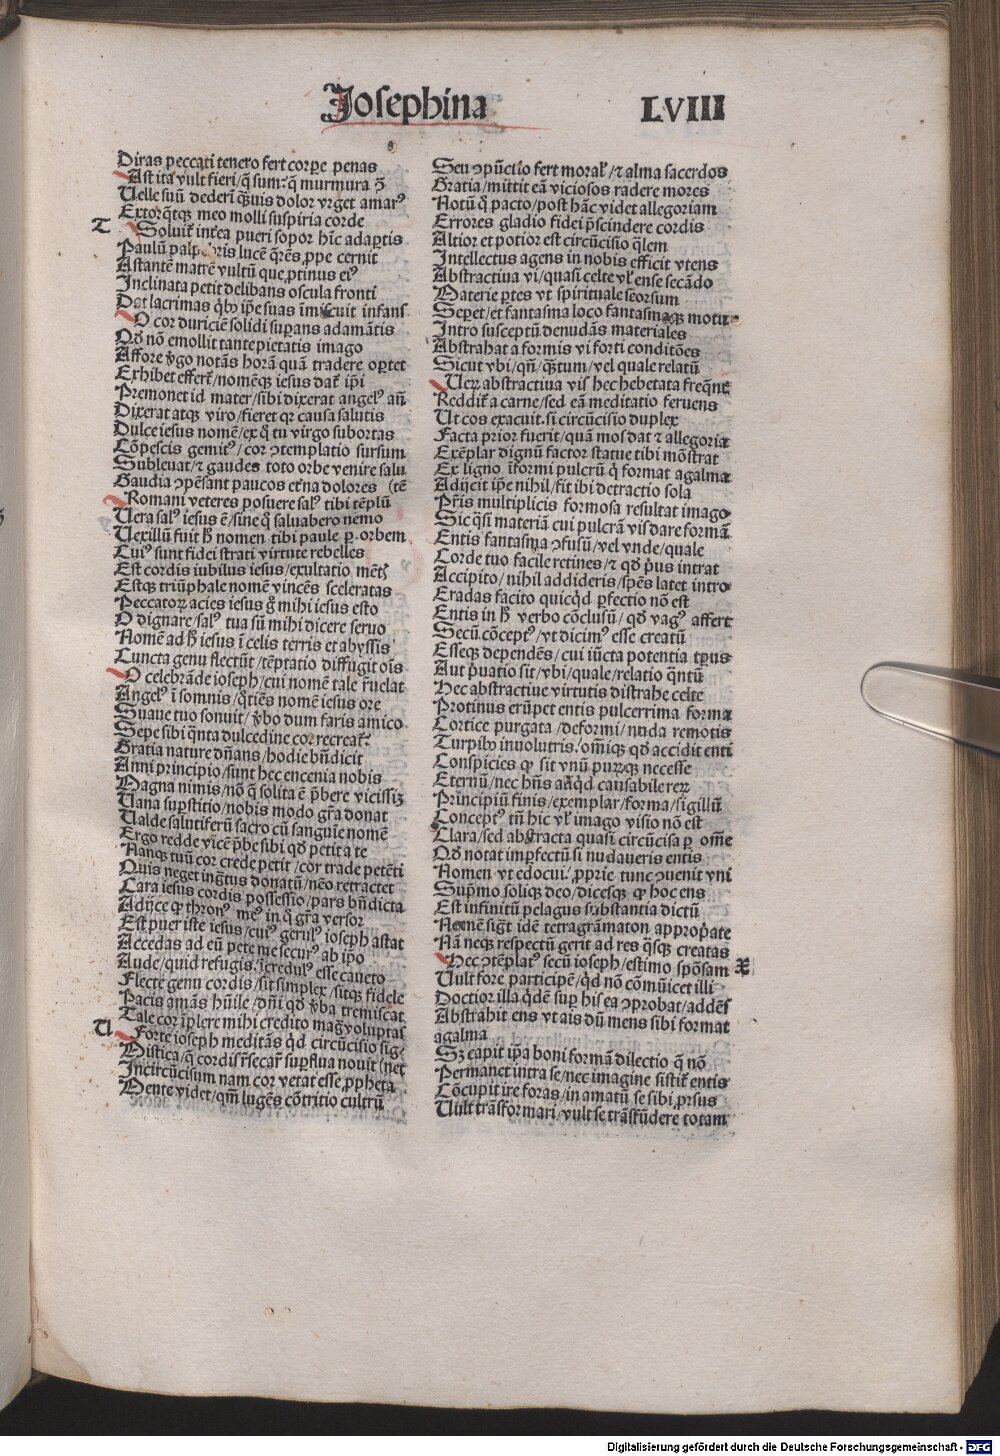 Josephina
LVIII
Diras peccati tenero fert corpe penas
Ast ita vult fieri/
Velle suū dederī qȝuis dolor vrget amarꝰ
Extorqtqȝ meo molli suspiria corde
T
Soluit intea pueri sopor hīc adaptis
Paulū lucē qrēs ꝓpe cernit
Astantē matrē vultū que ꝓtinus eiꝰ
Inclinata petit delibans oscula fronti
Dat lacrimas qbꝫ ipe suas īmiscuit infans
O cor duriciē solidi supans adamātis
Qđ nō emollit tante pietatis imago
Affore vgo notās horā quā tradere oportet
Exhibet effert/nomēqȝ iesus dat ipi
Premonet id mater/sibi dixerat angelꝰ añ
Dixerat atqȝ viro/fieret qr causa salutis
Dulce iesus nomē/ex q̄ tu virgo subortas
Cōpescis gemitꝰ/cor ꝯtemplatio sursum
Subleuat/⁊ gaudes toto orbe venire salu
Gaudia ꝯpēsant paucos etna dolores (tē
Romani veteres posuere salꝰ tibi tēplū
Vera salꝰ iesus ē/sine q̄ saluabero nemo
Vexillū fuit h̄ nomen tibi paule p orbem
Cuiꝰ sunt fidei strati virtute rebelles
Est cordis iubilus iesus/exultatio mētꝭ
Estqȝ triūphale nomē vincēs sceleratas
Peccatoꝝ acies iesus g̊ mihi iesus esto
O dignare/salꝰ tua sū mihi dicere seruo
Nomē ad h̄ iesus ī celis terris et abyssis
Cuncta genu flectūt/tēptatio diffugit oīs
O celebrāde ioseph/cui nomē tale r̄uelat
Angelꝰ ī somnis/q̄tiēs nomē iesus ore
Suaue tuo sonuit/v̄bo dum faris amico
Sepe sibi q̄nta dulcedine cor recreat.
Gratia nature dn̄ans/hodie bn̄dicit
Anni principio/sunt hec encenia nobis
Magna nimis/nō q̄ solita ē p̄bere vicissiȝ
Vana supstitio/nobis modo gr̄a donat
Valde salutiferū sacro cū sanguīe nomē
Ergo redde vicē p̄be sibi qđ petit a te
Nanqȝ tuū cor crede petit/cor trade petēti
Quis neget ingr̄tus donatū/nēo retractet
Cara iesus cordis possessio/pars bn̄dicta
Adijce qȝ thronꝰ meꝰ in q̄ gr̄a versor
Est puer iste iesus/cuiꝰ gerulꝰ ioseph astat
Accedas ad eū pete me securꝰ ab ipo
Aude/quid refugis: īcredulꝰ esse caueto
Flecte genu cordis/sit simplex/sitqȝ fidele
Pacis amās hūile/dn̄i qđ v̄ba tremiscat
Tale cor īplere mihi credito mag voluptas
V
Forte ioseph meditās qd circūcisio sig
Mistica/q̄ cordis r̄secar suꝑflua nouit (net
Incircūcisum nam cor vetat esse ꝓpheta
Mente videt/qm̄ lugēs cōtritio cultrū
Seu ꝯpūctio fert moral/⁊ alma sacerdos
Gratia/mittit eā viciosos radere mores
Notū q̄ pacto/post hāc videt allegoriam
Errores gladio fidei p̄scindere cordis
Altior et potior est circūcisio q̄lem
Intellectus agens in nobis efficit vtens
Abstractiua vi/quasi celte vl ense secādo
Materie ptes vt spirituale seorsum
Sepet/et fantasma loco fantasmaqȝ motu
Intro susceptū denudās materiales
Abstrahat a formis vi forti conditōes
Sicut vbi/qñ/qȝtum/vel quale relatū
Veꝝ abstractiua vis hec hebetata freqn̄t
Reddit a carne/sed eā meditatio feruens
Vt cos exacuit. si circūcisio duplex
Facta prior fuerit/quā mos dat ⁊ allegoria
Exēplar dignū factor statue tibi mōstrat
Ex ligno īformi pulcrū q̄ format agalma
Adijcit ipe nihil/fit ibi detractio sola
Pr̄is multiplicis formosa resultat imago
Sic q̄si materiā cui pulcrā vis dare formā
Entis fantasma ꝯfusū/vel vnde/quale
Corde tuo facile retines/⁊ qđ p̄us intrat
Accipito/nihil addideris/spēs latet intro
Eradas facito quicqd pfectio nō est
Entis in h̄ verbo cōclusū/qđ vagꝰ affert
Secū cōceptꝰ/vt dicimꝰ esse creatū
Esseqȝ dependēs/cui iūcta potentia tpus
Aut p̄uatio sit/vbi/quale/relatio q̄ntū
Hec abstractiue virtutis distrahe celte
Protinus erūpet entis pulcerrima forma
Cortice purgata/deformi/nuda remotis
Turpibꝫ inuolutris/oīmqȝ qđ accidit enti
Conspicies qȝ sit vnū puꝝqȝ necesse
Eternū/nec hn̄s aliqd causabile reꝝ
Principiū finis/exemplar/forma/sigillū
Conceptꝰ tn̄ hic vl imago visio nō est
Clara/sed abstracta quasi circūcisa p om̄e
Qđ notat impfectū si nudaueris entis
Nomen vt edocui/ꝓprie tunc ꝯuenit vni
Supmo soliqȝ deo/dicesqȝ qȝ hoc ens
Est infinitū pelagus substantia dictū
Nomē sigt idē tetragrāmaton appropate
Nā neqȝ respectū gerit ad res q̄sqȝ creatas
X
Hec ꝯtēplatꝰ secū ioseph/estimo spōsam
Vult fore participē/qđ nō cōmūicet illi
Doctior illa qdē sup his ea ꝯprobat/addēs
Abstrahit ens vt ais dū mens sibi format
agalma
Sȝ capit ipa boni formā dilectio q̄ nō
Permanet intra se/nec imagine sistit entis
Cōcupit ire foras/in amatū se sibi ꝓrsus
Vult trāsformari/vult se trāsfūdere totam
Digitalisierung gefördert durch die Deutsche Forschungsgemeinschaft - DFG